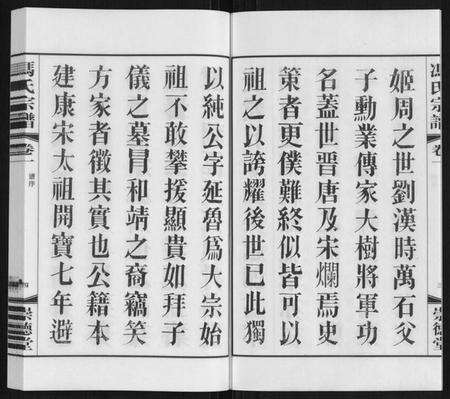 馮氏宗譜
卷
崇德堂
姬周之世劉漢時萬石父
子勳業傳家大樹將軍功
名蓋世晉唐及宋爛焉史
策者更僕難終似皆可以
祖之以誇耀後世已此獨
以純公字延魯爲大宗始
祖不敢攀援顯貴如拜子
儀之墓冒和靖之裔竊笑
方家者徵其實也公籍本
建康宋太祖開寶七年避
馮氏宗譜
卷一
譜序
四
崇德堂